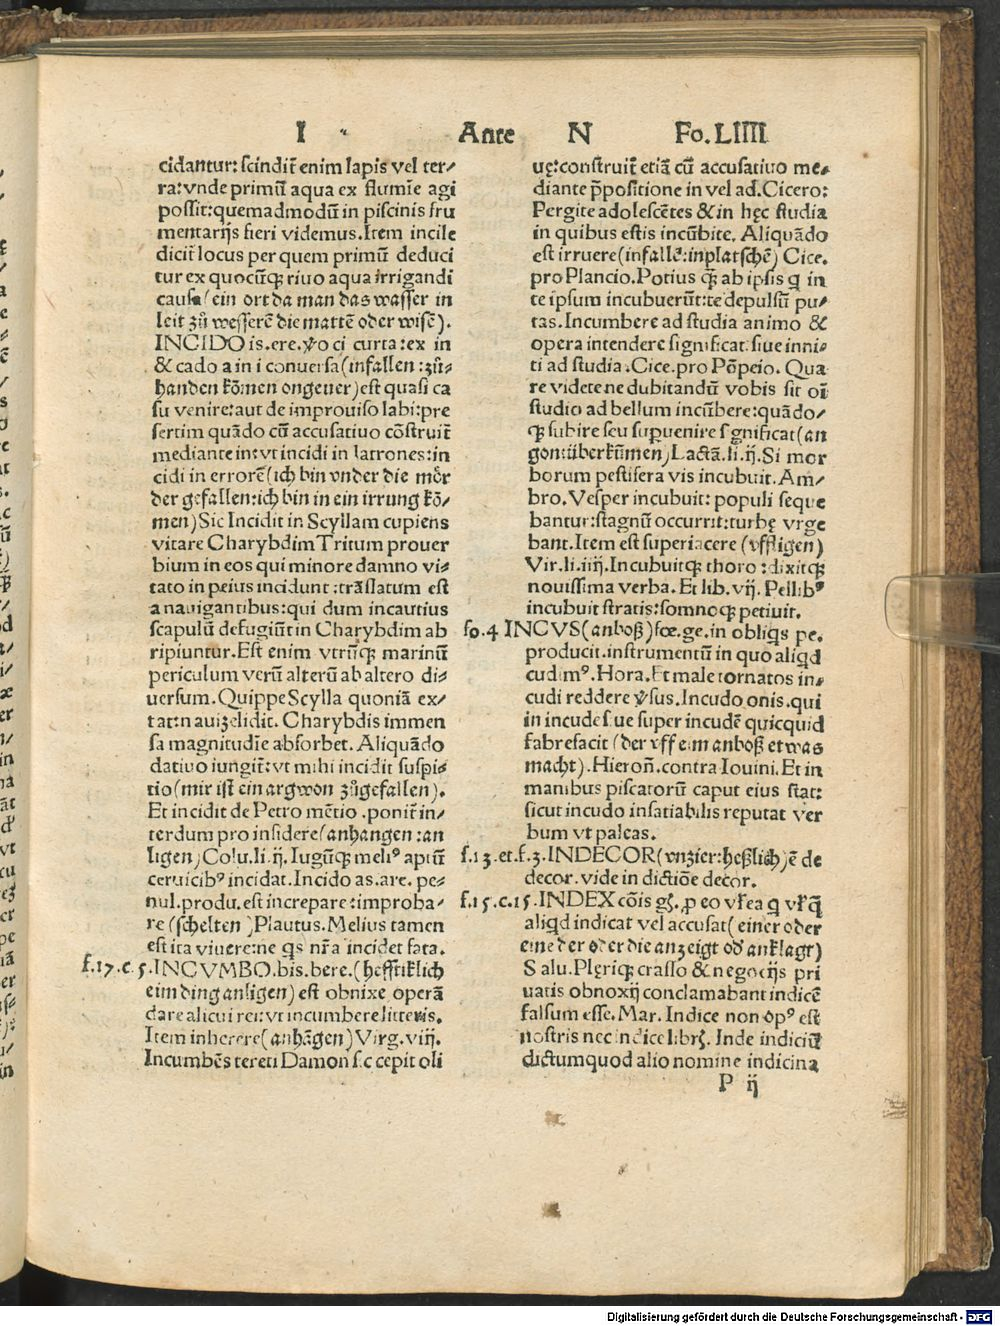 I Ante N Fo.LIIII
cidantur:scindit̄ enim lapis vel ter/
ra:vnde primū aqua ex flumīe agi
possit:quemadmodū in piscinis fru
mentarijs fieri videmus.Item incile
dicit̄ locus per quem primū deduci
tur ex quocūq̨ riuo aqua irrigandi
causa(ein ort da man das wasser in
leit zů wesserē die mattē oder wisē).
INCIDO is.ere. ci curta:ex in
& cado a in i conuersa(infallen:zů-
handen kōmen ongeuer)est quasi ca
su venire:aut de improuiso labi:pre
sertim quādo cū accusatiuo cōstruit̄
mediante in:vt incidi in latrones:in
cidi in errorē(ich bin vnder die mőr
der gefallen:ich bin in ein irrung kō/
men)Sic Incidit in Scyllam cupiens
vitare Charybdim Tritum prouer
bium in eos qui minore damno vi-
tato in peius incidunt:trāslatum est
a nauigantibus:qui dum incautius
scapulū defugiūt in Charybdim ab
ripiuntur.Est enim vtrūq̨ marinū
periculum verū alterū ab altero di-
uersum.Quippe Scylla quoniā ex-
tat:nauiz elidit. Charybdis immen
sa magnitudīe absorbet. Aliquādo
datiuo iungit̄:vt mihi incidit suspi-
tio(mir ist ein argwon zůgefallen).
Et incidit de Petro mētio .ponit̄ in/
terdum pro insidere(anhangen:an
ligen)Colu.li.ij. Iugūq̨ meliꝰ aptū
ceruicibꝰ incidat.Incido as.are. pe-
nul.produ.est increpare:improba-
re(schelten )Plautus.Melius tamen
est ita viuere:ne qs nr̄a incidet fata.
f.17.c.5.INCVMBO.bis.bere.(hefftiklich
eim ding anligen)est obnixe operā
dare alicui rei:vt incumbere litteris.
Item inherere(anhāgen)Virg.viij.
Incumbēs tereti Damon sic cepit oli
uę:construit̄ etiā cū accusatiuo me-
diante p̄positione in vel ad.Cicero:
Pergite adolescētes &in hęc studia
in quibus estis incūbite. Aliquādo
est irruere(infallē:inplatschē) Cice.
pro Plancio.Potius q̄ ab ipsis q in
te ipsum incubuerūt:te depulsū pu-
tas.Incumbere ad studia animo &
opera intendere significat:siue inni-
ti ad studia.Cice.pro Pōpeio. Qua
re videte ne dubitandū vobis sit oī
studio ad bellum incūbere:quādo/
q̨ subire seu supuenire significat(an
gon:überkūmen)Lactā.li.ij.Si mor
borum pestifera vis incubuit. Am-
bro.Vesper incubuit: populi seque
bantur:stagnū occurrit:turbę vrge
bant.Item est superiacere (vffligen)
Vir.li.iiij.Incubuitq̨ thoro :dixitq̨
nouissima verba. Et lib.vij. Pellibꝰ
incubuit stratis:somnosq̨ petiuit.
fo.4 INCVS(anboß)fœ.ge.in obliqs pe.
producit.instrumentū in quo aliqd
cudimꝰ. Hora.Et male tornatos in-
cudi reddere vsus.Incudo onis.qui
in incude siue super incudē quicquid
fabrefacit (der vff eim anboß etwas
macht).Hieroñ.contra Iouini.Et in
manibus piscatorū caput eius stat:
sicut incudo insatiabilis reputat ver
bum vt paleas.
f.13.et.f.3.INDECOR(vnzier:heßlich)ē de
decor.vide in dictiōe decor.
f.15.c.15.INDEX cōis gn̄. p eo
aliqd indicat vel accusat(einer oder
eine der oder die anzeigt od' anklagt)
Salu.Plęriq̨ crasso &negocijs pri
uatis obnoxij conclamabant indicē
falsum esse. Mar. Indice non opꝰ est
nostris nec indice libris. Inde indiciū
dictum quod alio nomine indicina
P ij
Digitalisierung gefördert durch die Deutsche Forschungsgemeinschaft - DFG